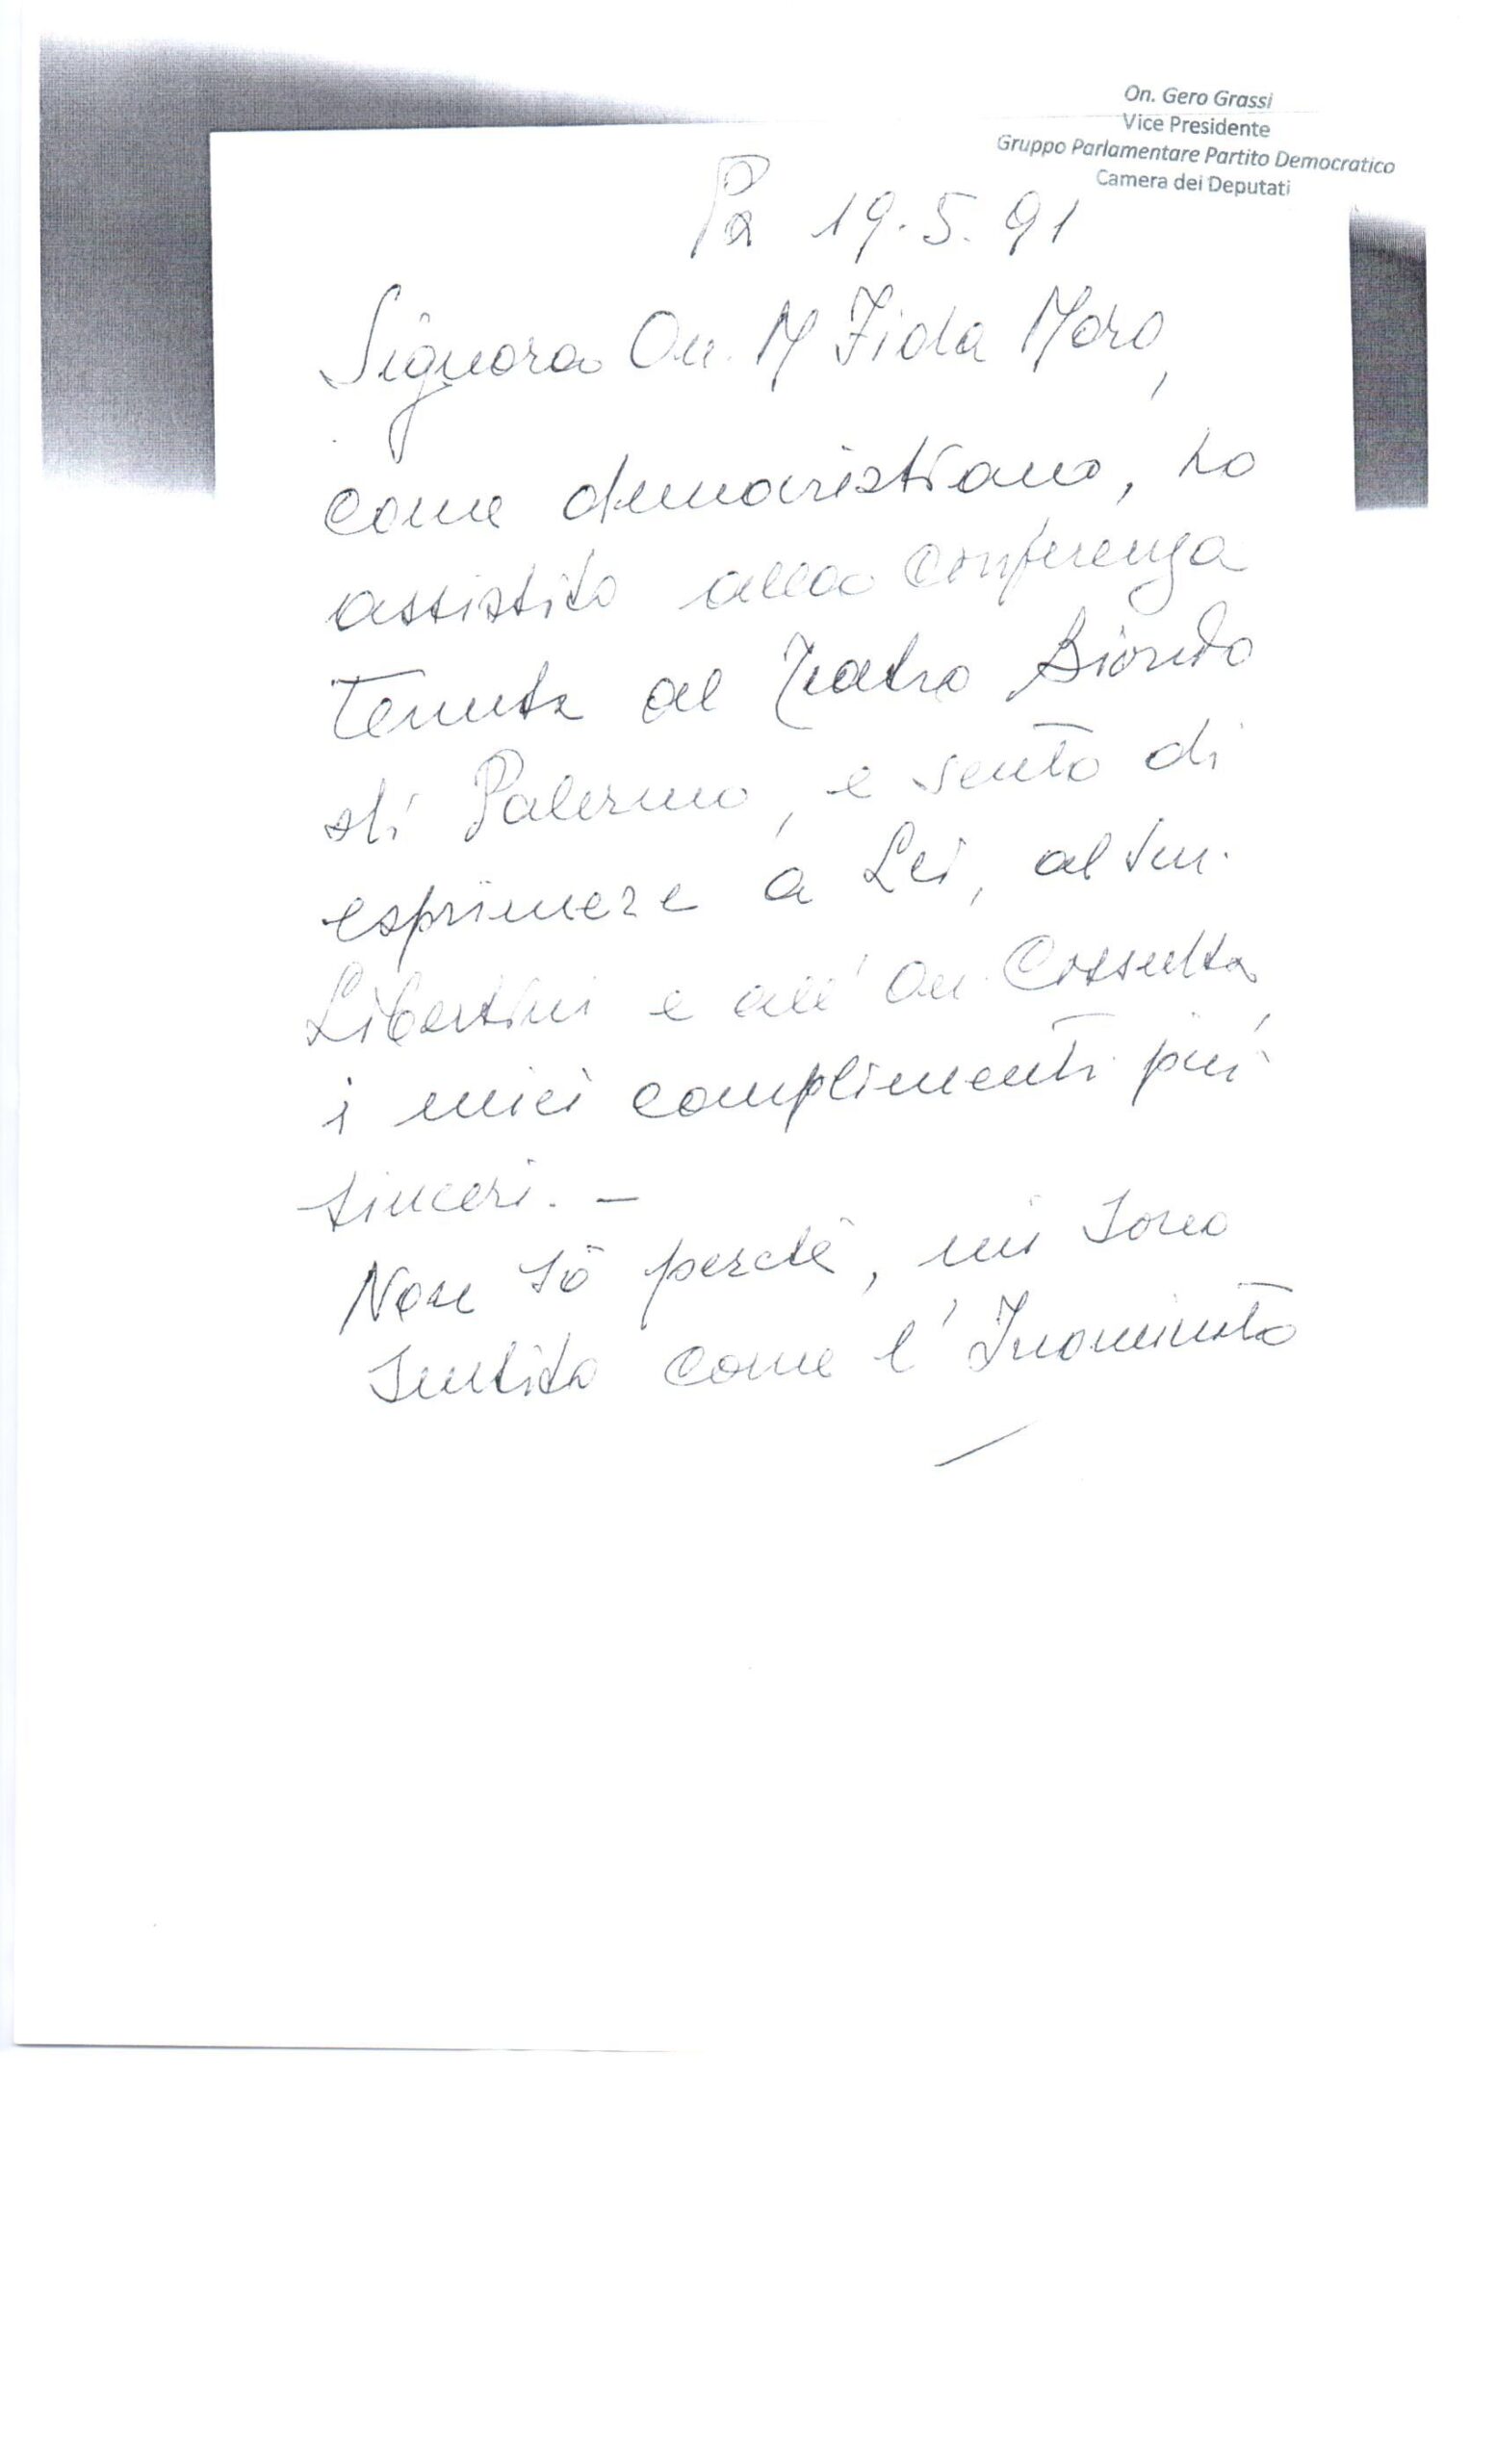 On. Gero Grassi
Vice Presidente
Gruppo Parlamentare Partito Democratico
Camera dei Deputati
Pa 19.5.91
Signora On. M Fida Moro,
come democristiano, ho
assistito alla Conferenza
Tenuta al Teatro Biondo
di Palermo, e sento di
esprimere a Lei, al sen.
Libertini e all' On. Cossutta
i miei complimenti più
sinceri. –
Non sò perchè, mi sono
sentito come l'Inominato